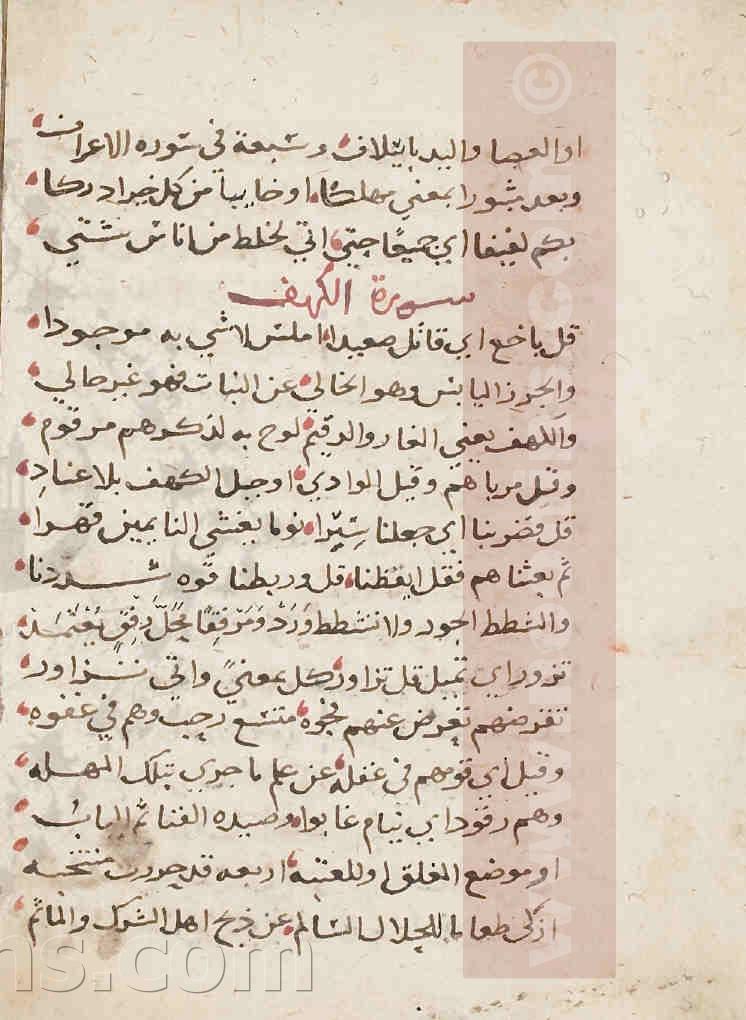 او العصا واليد بابتلاف وسبعة في سوره الاعراف
وبعد مثبورا بمعنى مهلكا او خايبا من كل خير ادركا
بكم لفيفا اي جميعا حتى اتي لخلط من اناس شتي
سورة الكهف
قل باخع اي قاتل صعيدا املس لا شي به موجودا
والجرز اليابس وهو الخالي عن النبات فهو غير حالي
والكهف يعني الغار والرقيم لوح به لذكرهم مرقوم
وقيل مرباهم وقيل الوادي او جبل الكهف بلا عناد
قل فضربنا اي جعلنا سترا نوما يغشي النايمين قهرا
ثم بعثناهم فقل ايقظنا قل وربطنا قوه شددنا
والشطط الجور ولا تشطط ورد ومرفقا بحل رفق يعتمد
تزور اي تميل قل تزاور كل بمعنى واتي تزاور
تقرضهم تعرض عنهم فجوه متسع رحب وهم في غفوه
وقيل اي قومهم في غفله عن علم ما جري بتلك المهله
وهم رقود اي نيام غابوا وصيده الفنا ثم الباب
او موضع الغلق او للعتبه اربعه قد حررت منتخبه
ازكى طعاما للحلال السالم عن ذبح اهل الشرك والماثم
www.
ns.com
©